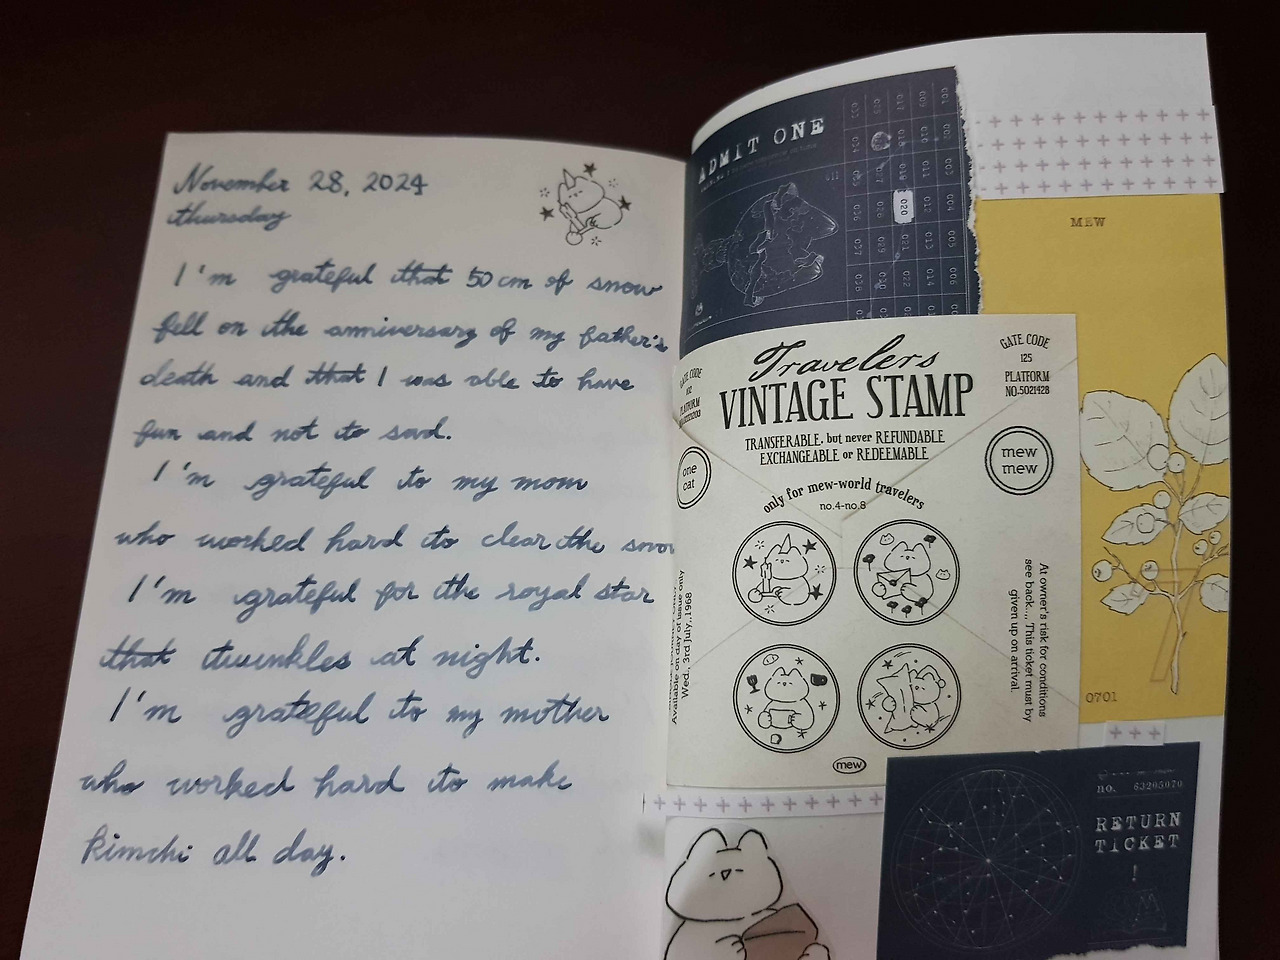 November 28, 2024
thursday
I'm grateful that 50 cm of snow
fell on the anniversary of my father's
death and that I was able to have
fun and not to sad.
I'm grateful to my mom
who worked hard to clear the snow
I'm grateful for the royal star
that twinkles at night.
I'm grateful to my mother
who worked hard to make
kimchi all day.
ADMIT ONE
011
001 002 003 004 005 006
009 010 011 012 013 014
017 018 019 020 021 022
029 030
033 034 036 037 038
MEW
0701
Travelers
VINTAGE STAMP
TRANSFERABLE, but never REFUNDABLE
EXCHANGEABLE or REDEEMABLE
GATE CODE
125
PLATFORM
NO.5021428
GATE CODE
PLATFORM
one
cat
mew
mew
only for mew-world travelers
no.4-no.8
At owner's risk for conditions
see back.... This ticket must by
given up on arrival.
Available on day of issue only
Wed., 3rd July,.1968
mew
no. 63205070
RETURN
TICKET
!